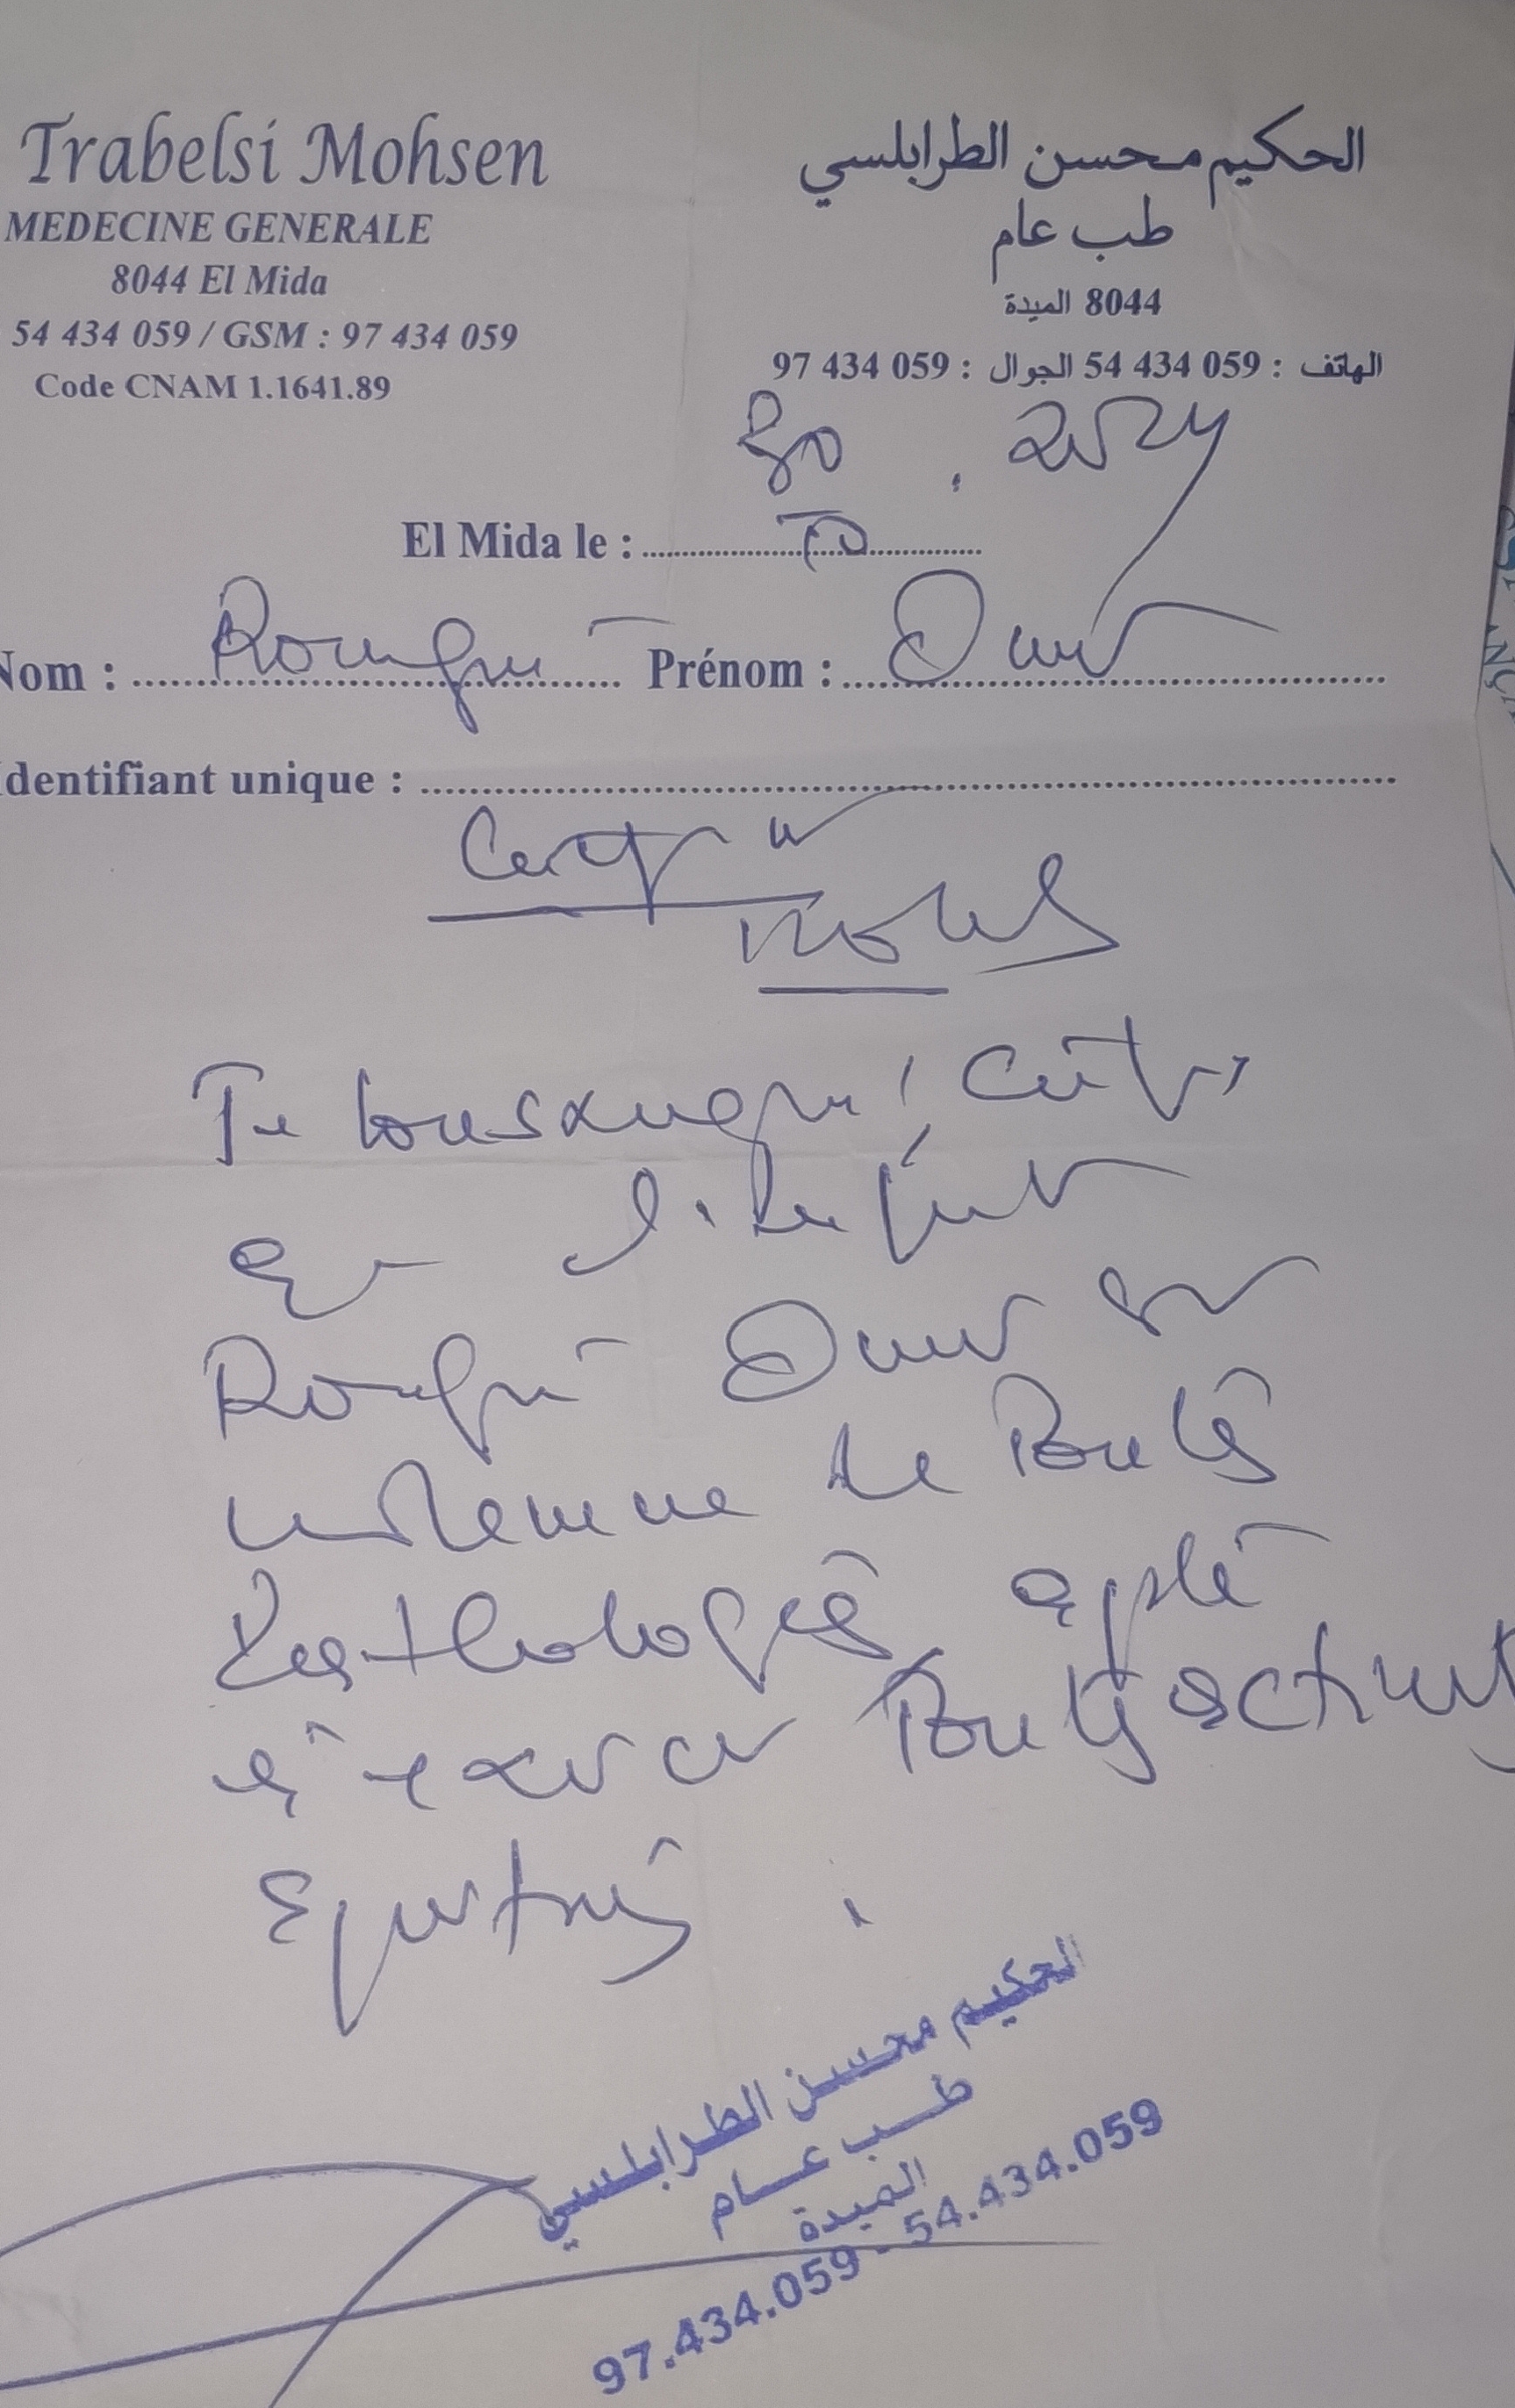 Trabelsi Mohsen
MEDECINE GENERALE
8044 El Mida
54 434 059 / GSM : 97 434 059
Code CNAM 1.1641.89
الحكيم محسن الطرابلسي
طب عام
8044 الميدة
الهاتف : 059 434 54 الجوال : 059 434 97
30 . 2024
El Mida le : 10
Nom : Prénom : Omar
Identifiant unique :
Certificat
Je soussigné certifie
que l'enfant
Omar est
indemne de toute
Pathologie apte
à exercer toute activité
الحكيم محسن الطرابلسي
طب عام
الميدة
97.434.059 - 54.434.059